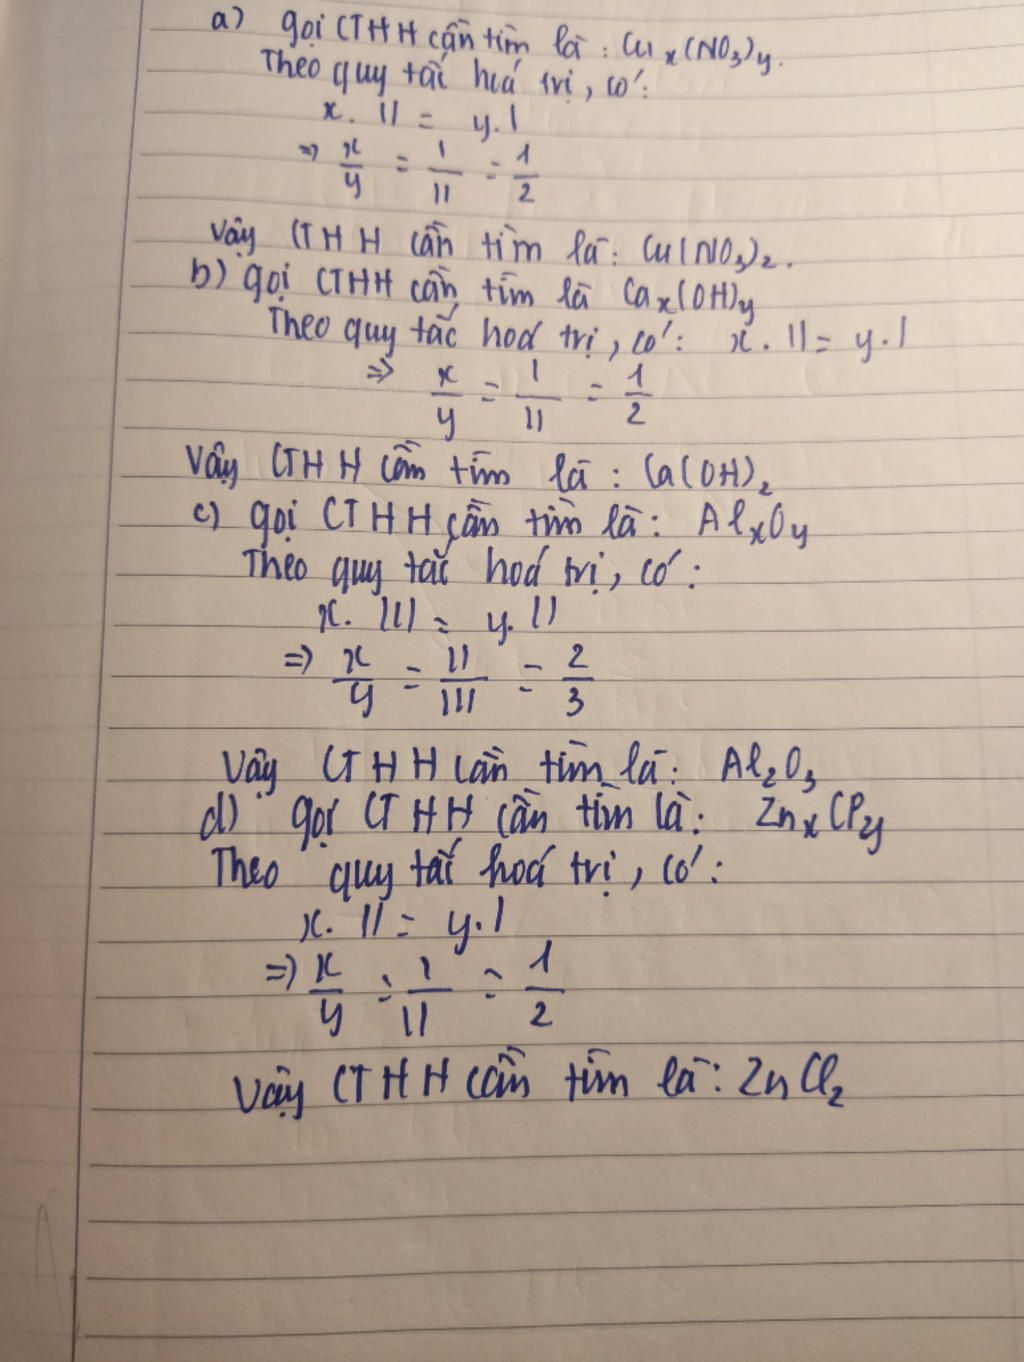 a) gọi CTHH cần tìm là: Cuₓ(NO₃)y.
Theo quy tắc hoá trị, có:
x. II = y. I
=> x/y = I/II = 1/2
Vậy CTHH cần tìm là: Cu(NO₃)₂.
b) gọi CTHH cần tìm là Caₓ(OH)y
Theo quy tắc hoá trị, có: x. II = y. I
=> x/y = I/II = 1/2
Vậy CTHH cần tìm là: Ca(OH)₂
c) gọi CTHH cần tìm là: AlₓOy
Theo quy tắc hoá trị, có:
x. III = y. II
=> x/y = II/III = 2/3
Vậy CTHH cần tìm là: Al₂O₃
d) gọi CTHH cần tìm là: ZnₓCly
Theo quy tắc hoá trị, có:
x. II = y. I
=> x/y = I/II = 1/2
Vậy CTHH cần tìm là: ZnCl₂